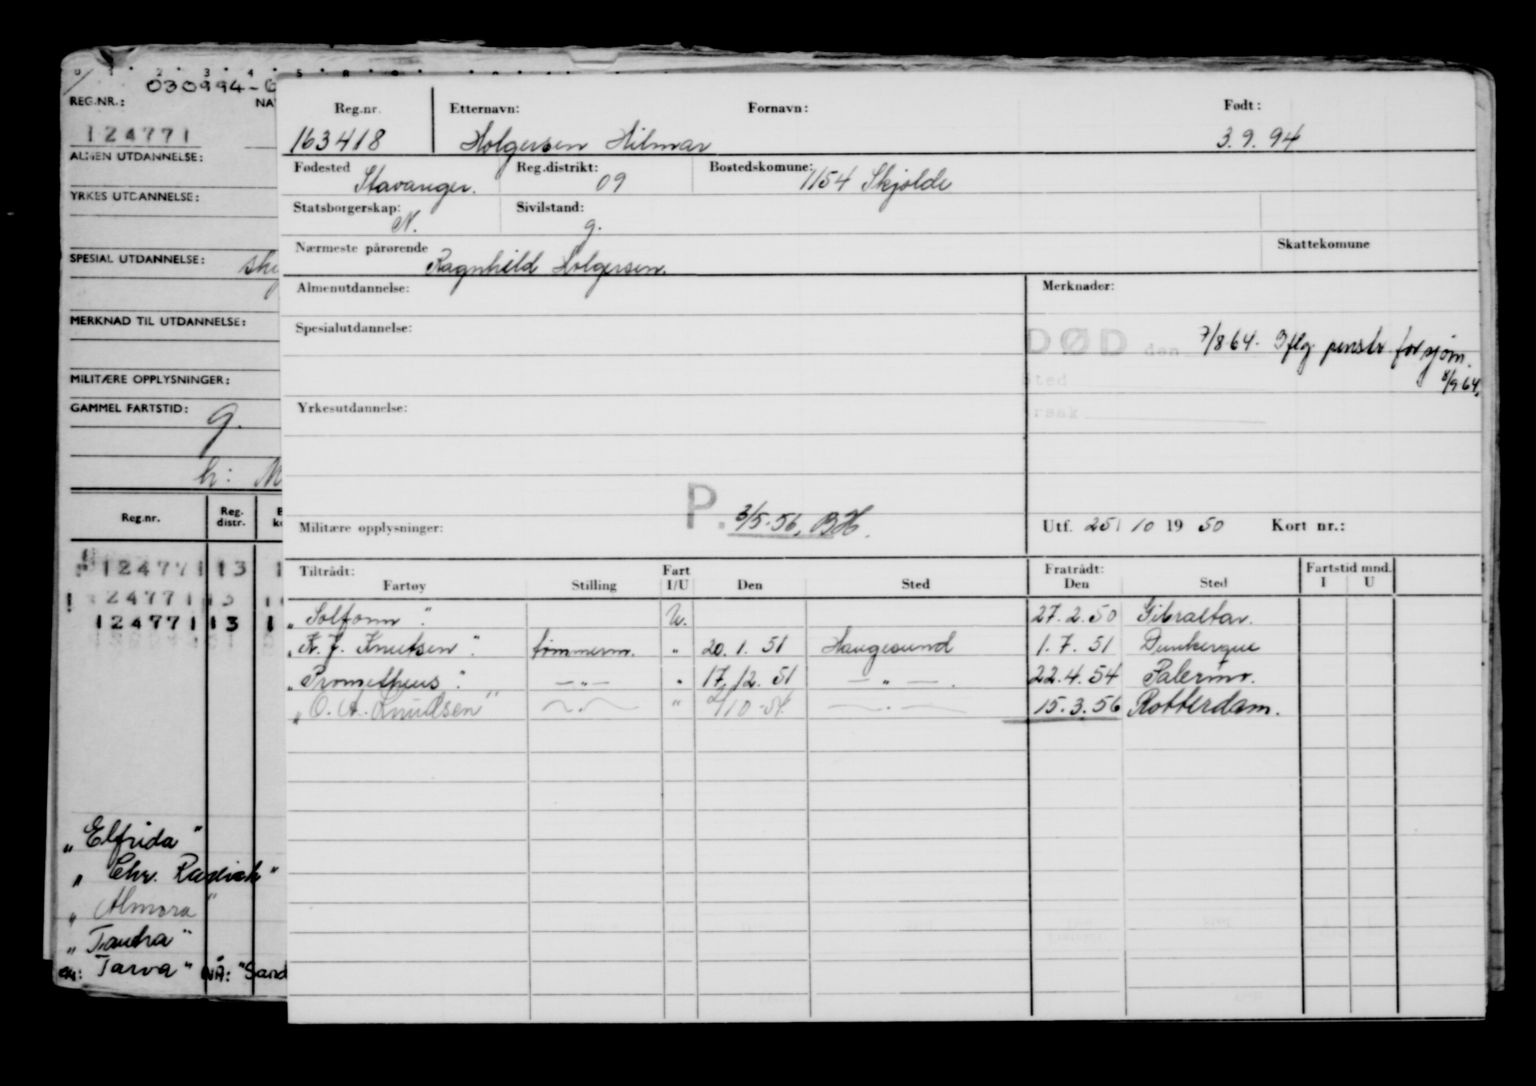 030994-
REG.NR.:
124771
ALMEN UTDANNELSE:
YRKES UTDANNELSE:
SPESIAL UTDANNELSE:
MERKNAD TIL UTDANNELSE:
MILITÆRE OPPLYSNINGER:
GAMMEL FARTSTID: g.
h: M
Reg.nr. Reg. distr.
124771 13
24771 3
124771 13
"Elfrida"
"Chr. Radich"
"Almora"
"Tandra"
"Tarva" NÅ: "Sand
Reg.nr. Etternavn: Fornavn: Født:
163418 Holgersen Hilmar 3.9.94
Fødested Stavanger. Reg.distrikt: 09 Bostedskomune: 1154 Skjolde
Statsborgerskap: N. Sivilstand: g.
Nærmeste pårørende Ragnhild Holgersen. Skattekomune
Almenutdannelse: Merknader:
Spesialutdannelse: DØD den 7/8 64. Iflg penstr for sjøm.
8/9 64.
Yrkesutdannelse:
Militære opplysninger: P. 3/5-56, BH. Utf. 25/10 1950 Kort nr.:
Tiltrådt: Fart Fratrådt: Fartstid mnd.
Fartøy Stilling I/U Den Sted Den Sted I U
"Solfonn" U. 27.2.50 Gibraltar.
"K. J. Knutsen" tømmerm. " 20.1.51 Haugesund 1.7.51 Dunkerque
"Prometheus" —"— " 17.12.51 —"—. 22.4.54 Palermo.
"O. A. Knudsen" " 15.3.56 Rotterdam.